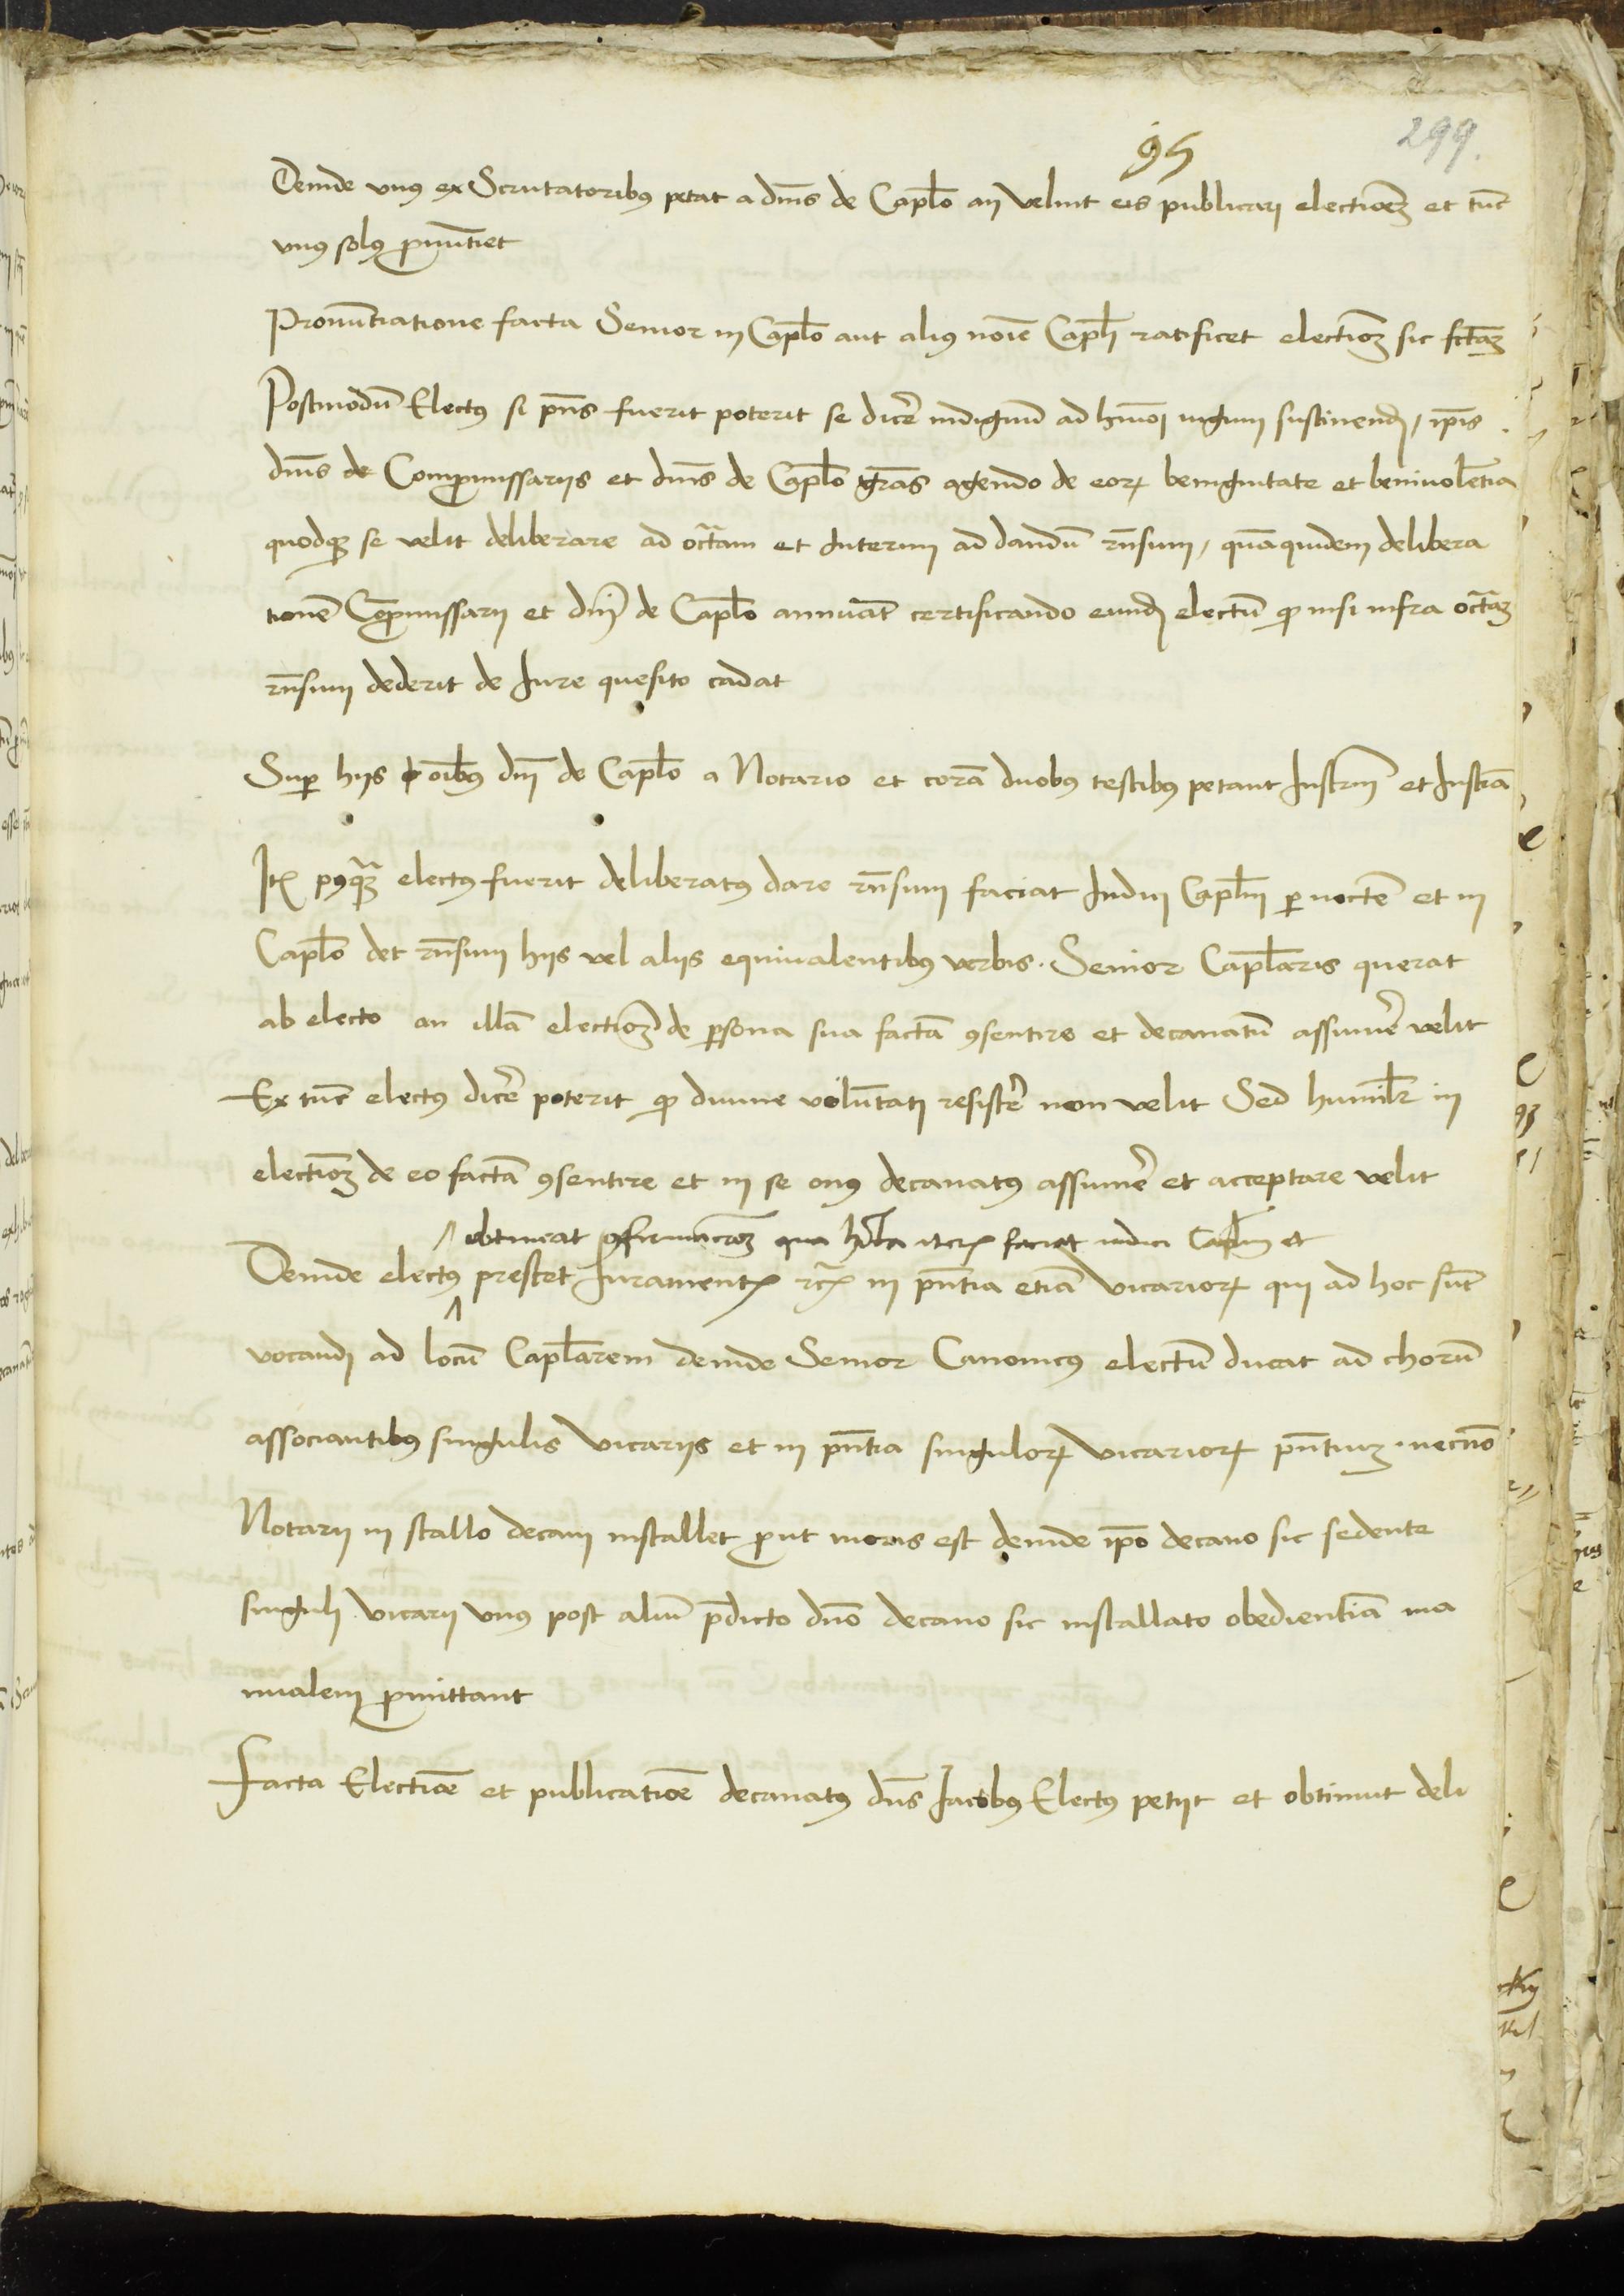 299.
95
Deinde vnus ex Scrutatoribus petat a dnis de Caplo an velint eis publicari electionem et tunc
vnus solus pronuntiet
Pronuntiatione facta Senior in Caplo aut alius noie Capli ratificet electionem sic fctam
Postmodum Electus si pns fuerit poterit se dicere indignum ad hmoi iugum sustinend, ipis
dnis de Compromissariis et dnis de Caplo gras agendo de eorum benignitate et beniuolentia
quodque se velit deliberare ad octauam et Interim ad dandum rnsum, quamquidem delibera
tionem Compromissarii et dni de Caplo annuant certificando eundem electum quod nisi infra octauam
rnsum dederit de Iure quesito cadat
Super hiis oibus dni de Caplo a Notario et coram duobus testibus petant Instrm et Instra
Item postquam electus fuerit deliberatus dare rnsum faciat Indici Caplm per noctem et in
Caplo det rnsum hiis vel aliis equiualentibus verbis. Senior Caplaris querat
ab electo an illam electionem de persona sua factam consentire et decanatum assumere velit
Ex tunc electus dicere poterit quod diuine voluntati resistere non velit Sed humiliter in
electionem de eo factam consentire et in se onus decanatus assumere et acceptare velit
obtineat confirmacionem qua hita iterum faciat indici Caplm et
Deinde electus prestet Iuramentum rc in pntia etiam vicariorum qui ad hoc sunt
vocandi ad locum Caplarem deinde Senior Canonicus electum ducat ad chorum
associantibus singulis vicariis et in pntia singulorum vicariorum pntium necnon
Notarii in stallo decani installet prout moris est deinde ipo decano sic sedente
singuli vicarii vnus post alium predicto dno decano sic installato obedientiam ma
nualem promittant
Facta Electione et publicatione decanatus dns Iacobus Electus petiit et obtinuit deli